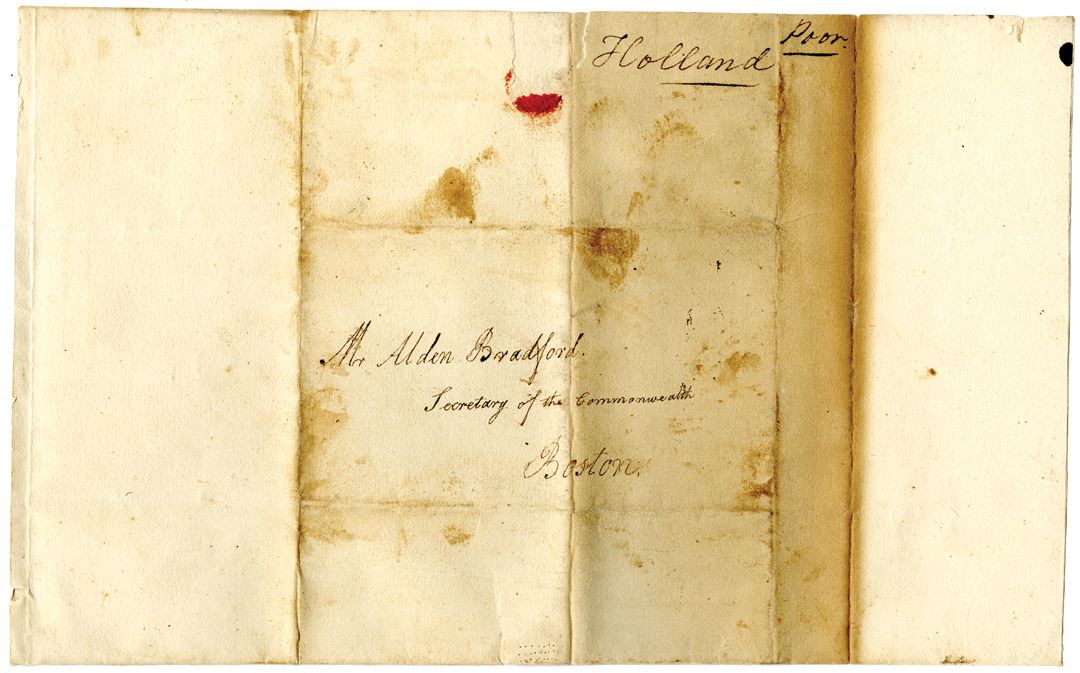 Poor.
Holland
Mr Alden Bradford.
Secretary of the Commonwealth
Boston.